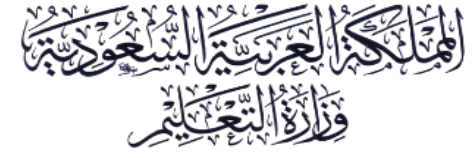 المملكة العربية السعودية
وزارة التعليم